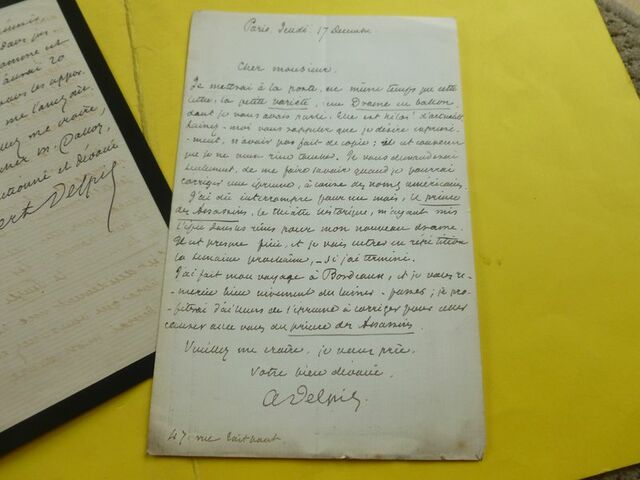 Paris, Jeudi 17 Décembre
Cher monsieur.
Je mettrai à la poste, en même temps que cette
lettre, la petite variété, un Drame en ballon,
dont je vous avais parlé. Elle est
moi vous rappeler que je désire expressé-
ment, n'avoir pas fait de copie; et convenu
que je ne Je vous demanderai
seulement, de me faire savoir quand je pourrai
corriger une épreuve, à cause des noms américains.
J'ai dû interrompre pour un mois, le prince
des Assassins, le théâtre historique, m'ayant mis
l'épée dans les reins pour mon nouveau drame.
Il est presque fini, et je vais entrer en répétition
la semaine prochaine, - si j'ai terminé.
J'ai fait mon voyage à Bordeaux, et je vous re-
-mercie bien vivement du laissez-passer; je pro-
fiterai d'ailleurs de l'épreuve à corriger pour
causer avec vous du prince des Assassins.
Veuillez me croire, je vous prie,
Votre bien dévoué.
A Delpit.
47 rue Taitbout
dans
20
me
me croire,
et dévoué
Delpit